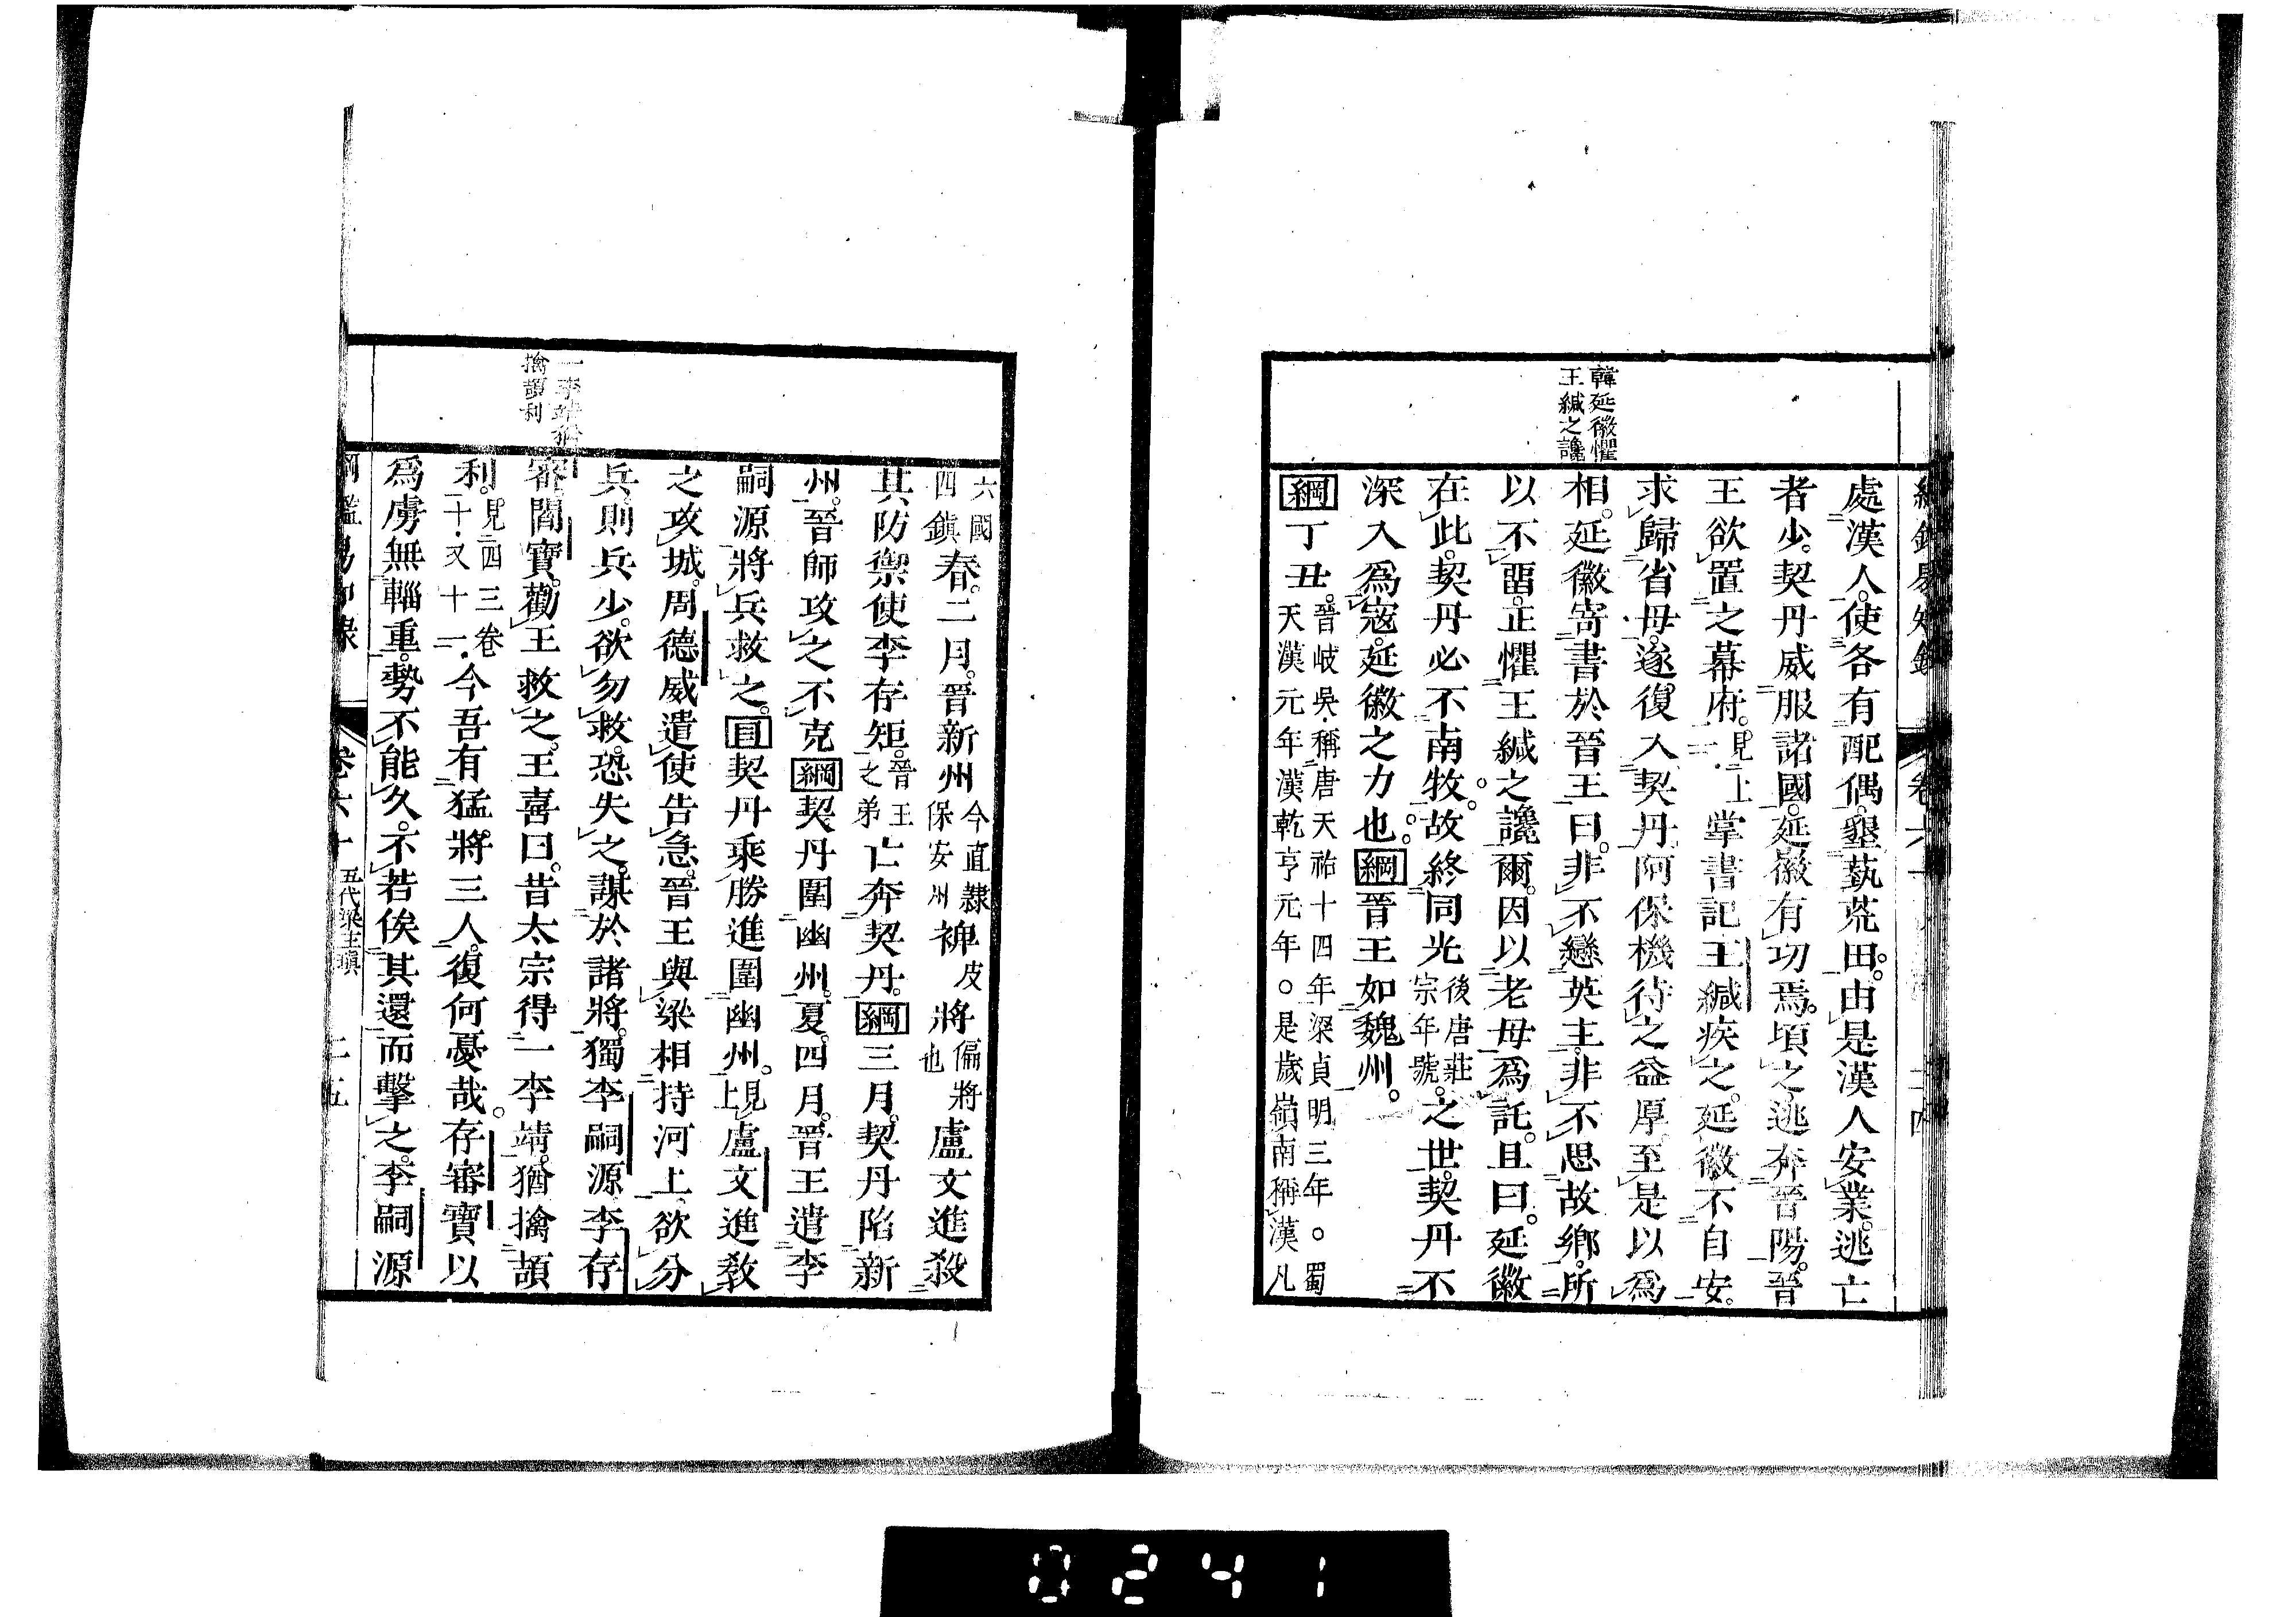 韓延徽懼
王緘之讒
處漢人。使各有配偶。墾蓺荒田。由是漢人安業。逃亡
者少。契丹威服諸國。延徽有功焉。頃之逃奔晉陽。晉
王欲置之幕府。見上掌書記王緘疾之。延徽不自安。
求歸省母。遂復入契丹。阿保機待之益厚。至是以爲
相。延徽寄書於晉王曰。非不戀英主。非不思故鄉。所
以不畱。正懼王緘之讒爾。因以老母爲託。且曰。延徽
在此。契丹必不南牧。故終同光後唐莊宗年號。之世。契丹不
深入爲寇。延徽之力也。綱晉王如魏州。
綱丁丑。晉岐吳稱唐天祐十四年梁貞明三年。蜀天漢元年漢乾亨元年。是歲嶺南稱漢凡
六國四鎮春。二月。晉新州今直隸保安州裨皮將偏將也盧文進殺
其防禦使李存矩。晉王之弟亡奔契丹。綱三月。契丹陷新
州。晉師攻之不克綱契丹圍幽州。夏。四月。晉王遣李
嗣源將兵救之。目契丹乘勝進圍幽州。見上盧文進敎
之攻城。周德威遣使告急。晉王與梁相持河上。欲分
兵。則兵少。欲勿救。恐失之。謀於諸將。獨李嗣源李存
審。閻寶。勸王救之。王喜曰。昔太宗得一李靖。猶擒頡
利。見四三卷二十又十一今吾有猛將三人。復何憂哉。存審寶以
爲虜無輜重。勢不能久。不若俟其還而擊之。李嗣源
一李靖猶
擒頡利
綱鑑易知錄 卷六十 五代梁主瑱 二五